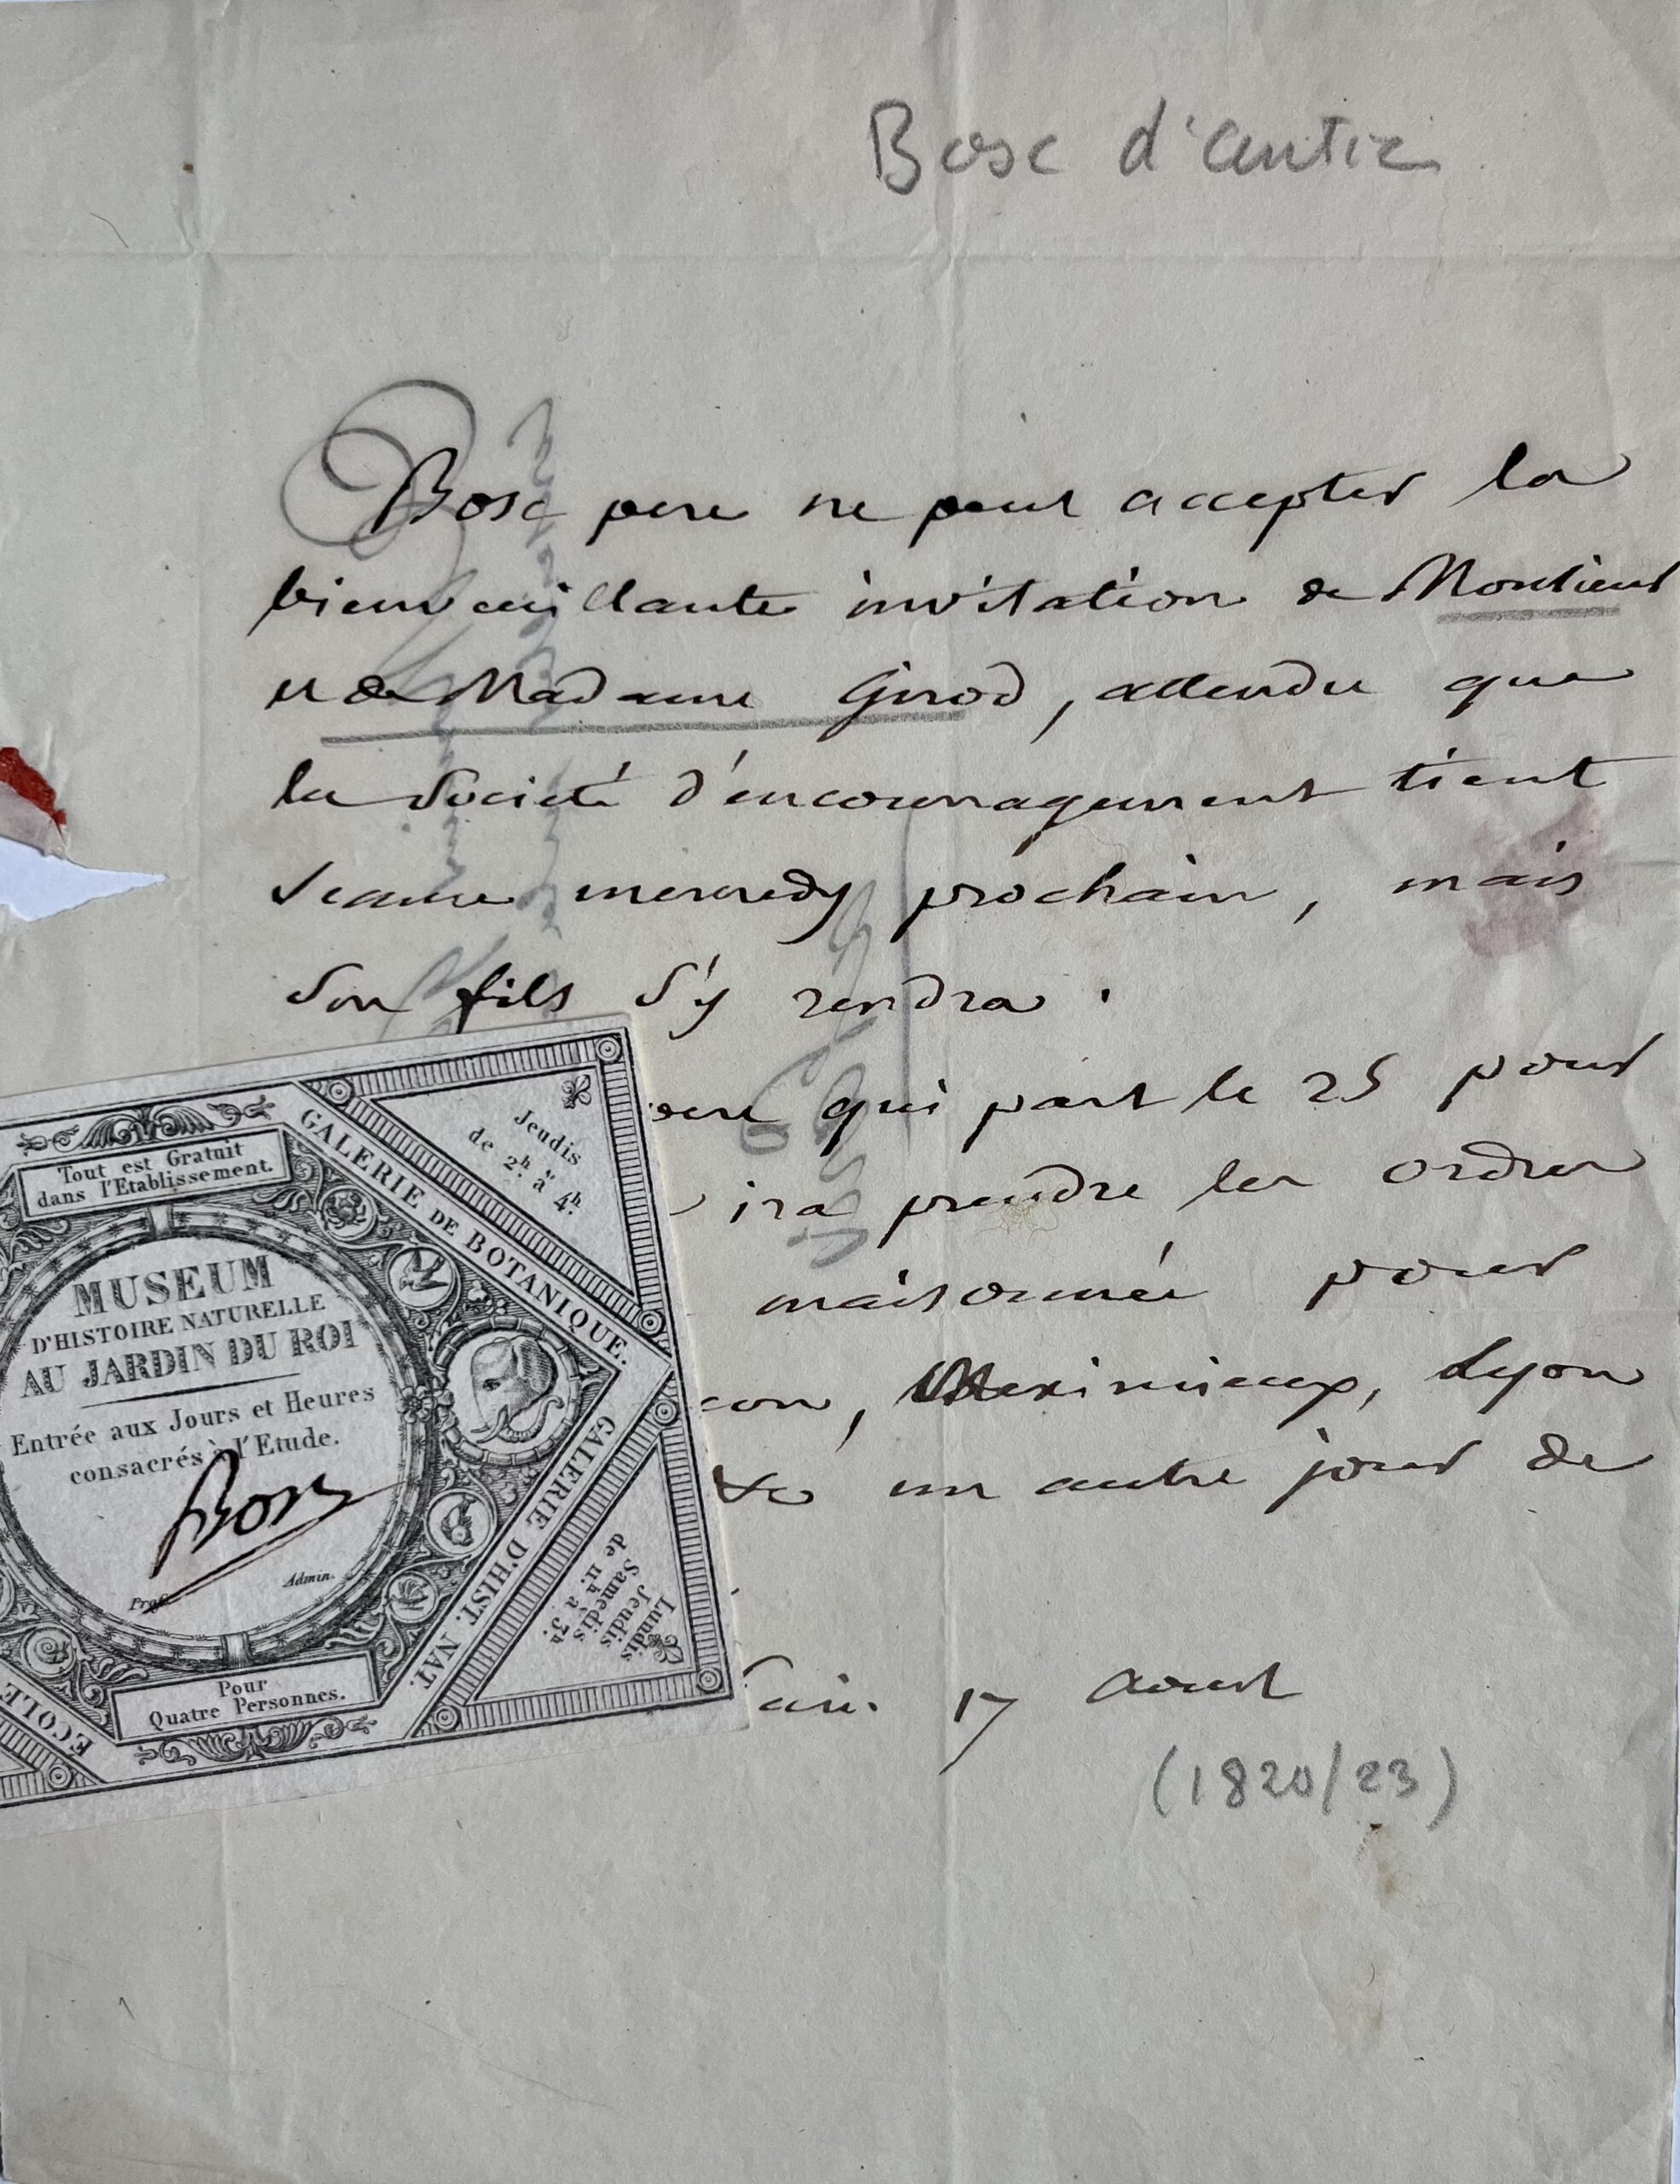 Bosc d'antic
Bosc pere ne peut accepter la
bienveuillante invitation de Monsieur
et de Madame Girod, attendu que
la Societé d'encouragement tient
seance mercredy prochain, mais
son fils s'y rendra.
pere qui part le 25 pour
ira prendre les ordres
maisonnée pour
con, Meximieux, Lyon
&c un autre jour de
Paris 17 aoust
(1820/23)
Tout est Gratuit
dans l'Etablissement.
MUSEUM
D'HISTOIRE NATURELLE
AU JARDIN DU ROI
Entrée aux Jours et Heures
consacrés à l'Etude.
Bosc
Profr.
Admin.
Pour
Quatre Personnes.
GALERIE DE BOTANIQUE.
Jeudis
de 2h. à 4h.
GALERIE D'HIST. NAT.
Lundis
Jeudis
Samedis
de 11h. à 3h.
ECOLE